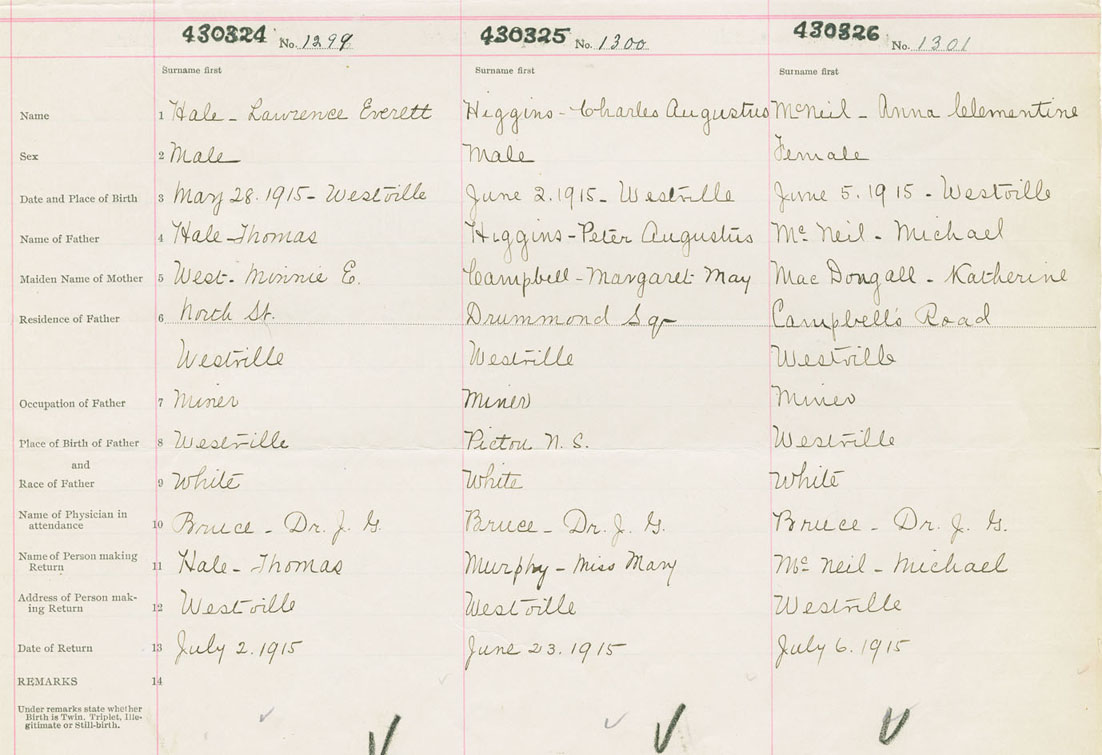 430324 No. 1299 430325 No. 1300 430326 No. 1301
Surname first Surname first Surname first
Name 1 Hale - Lawrence Everett Higgins - Charles Augustus McNeil - Anna Clementine
Sex 2 Male Male Female
Date and Place of Birth 3 May 28. 1915 - Westville June 2. 1915 - Westville June 5. 1915 - Westville
Name of Father 4 Hale - Thomas Higgins - Peter Augustus McNeil - Michael
Maiden Name of Mother 5 West - Minnie E. Campbell - Margaret May Mac Dongall - Katherine
Residence of Father 6 North St. Drummond Sq. Campbell's Road
Westville Westville Westville
Occupation of Father 7 Miner Miner Miner
Place of Birth of Father 8 Westville Pictou N. S. Westville
and
Race of Father 9 White White White
Name of Physician in
attendance 10 Bruce - Dr. J. G. Bruce - Dr. J. G. Bruce - Dr. J. G.
Name of Person making
Return 11 Hale - Thomas Murphy - Miss Mary McNeil - Michael
Address of Person mak-
ing Return 12 Westville Westville Westville
Date of Return 13 July 2. 1915 June 23. 1915 July 6. 1915
REMARKS 14
Under remarks state whether
Birth is Twin, Triplet, Ille-
gitimate or Still-birth.